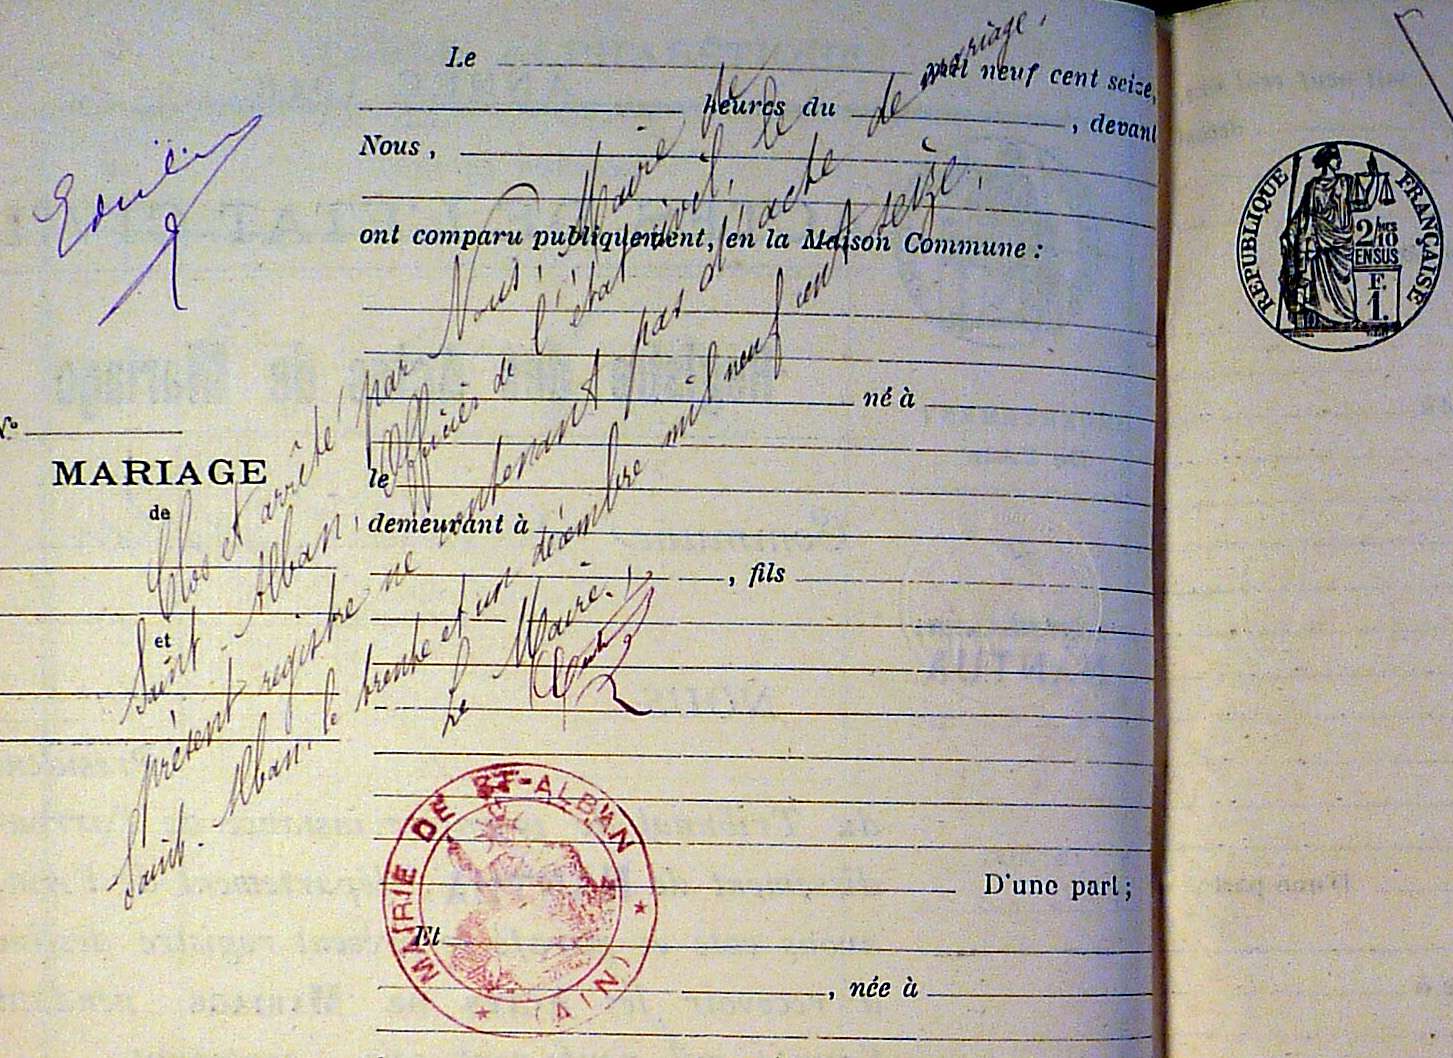 Le mil neuf cent seize,
heures du , devant
Nous,
ont comparu publiquement, en la Maison Commune :
né à
le
demeurant à
, fils
D'une part;
Et
, née à
N°
MARIAGE
de
et
Clos et arrêté par Nous, Maire de
Saint-Alban, Officier de l'état civil, le
présent registre ne contenant pas d'acte de mariage.
Saint-Alban, le trente et un décembre mil neuf cent seize.
Le Maire,
MAIRIE DE ST-ALBAN
(AIN)
RÉPUBLIQUE FRANÇAISE
2/10
EN SUS
F.
1.